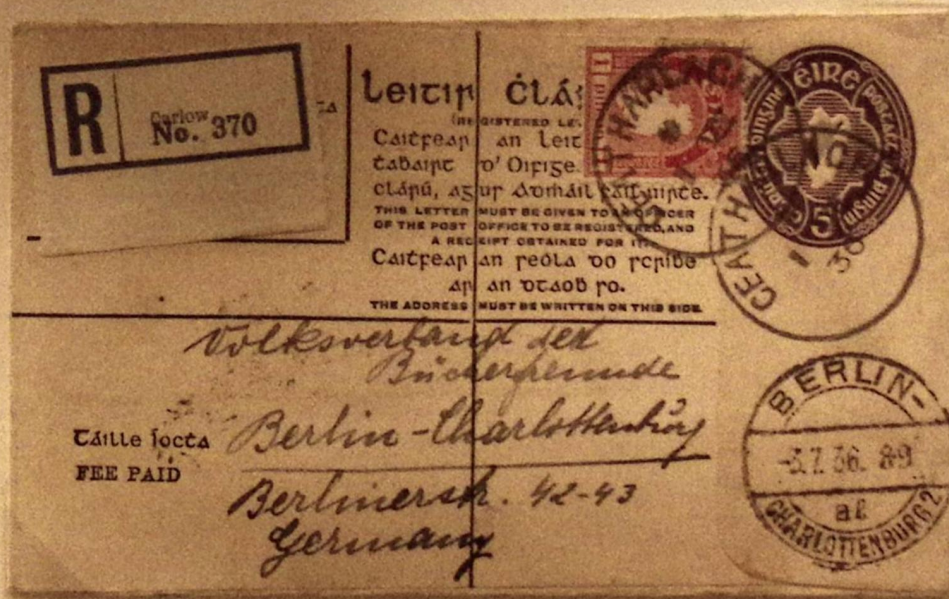 R
Carlow
No. 370
Leitir Ċlá
(REGISTERED LE
Caitfear an Leit
tabairt d'Oifige
clárú, agus admháil
THIS LETTER MUST BE GIVEN TO AN OFFICER
OF THE POST OFFICE TO BE REGISTERED, AND
A RECEIPT OBTAINED FOR IT.
Caitfear an seóla do scríbe
ar an dtaob so.
THE ADDRESS MUST BE WRITTEN ON THIS SIDE.
éire
5
CEATH
36
Volksverband der
Bücherfreunde
Berlin-Charlottenburg
Táille íocta
FEE PAID
Berlinerstr. 42-43
Germany
BERLIN-
-3.7.36. 8-9
CHARLOTTENBURG 2